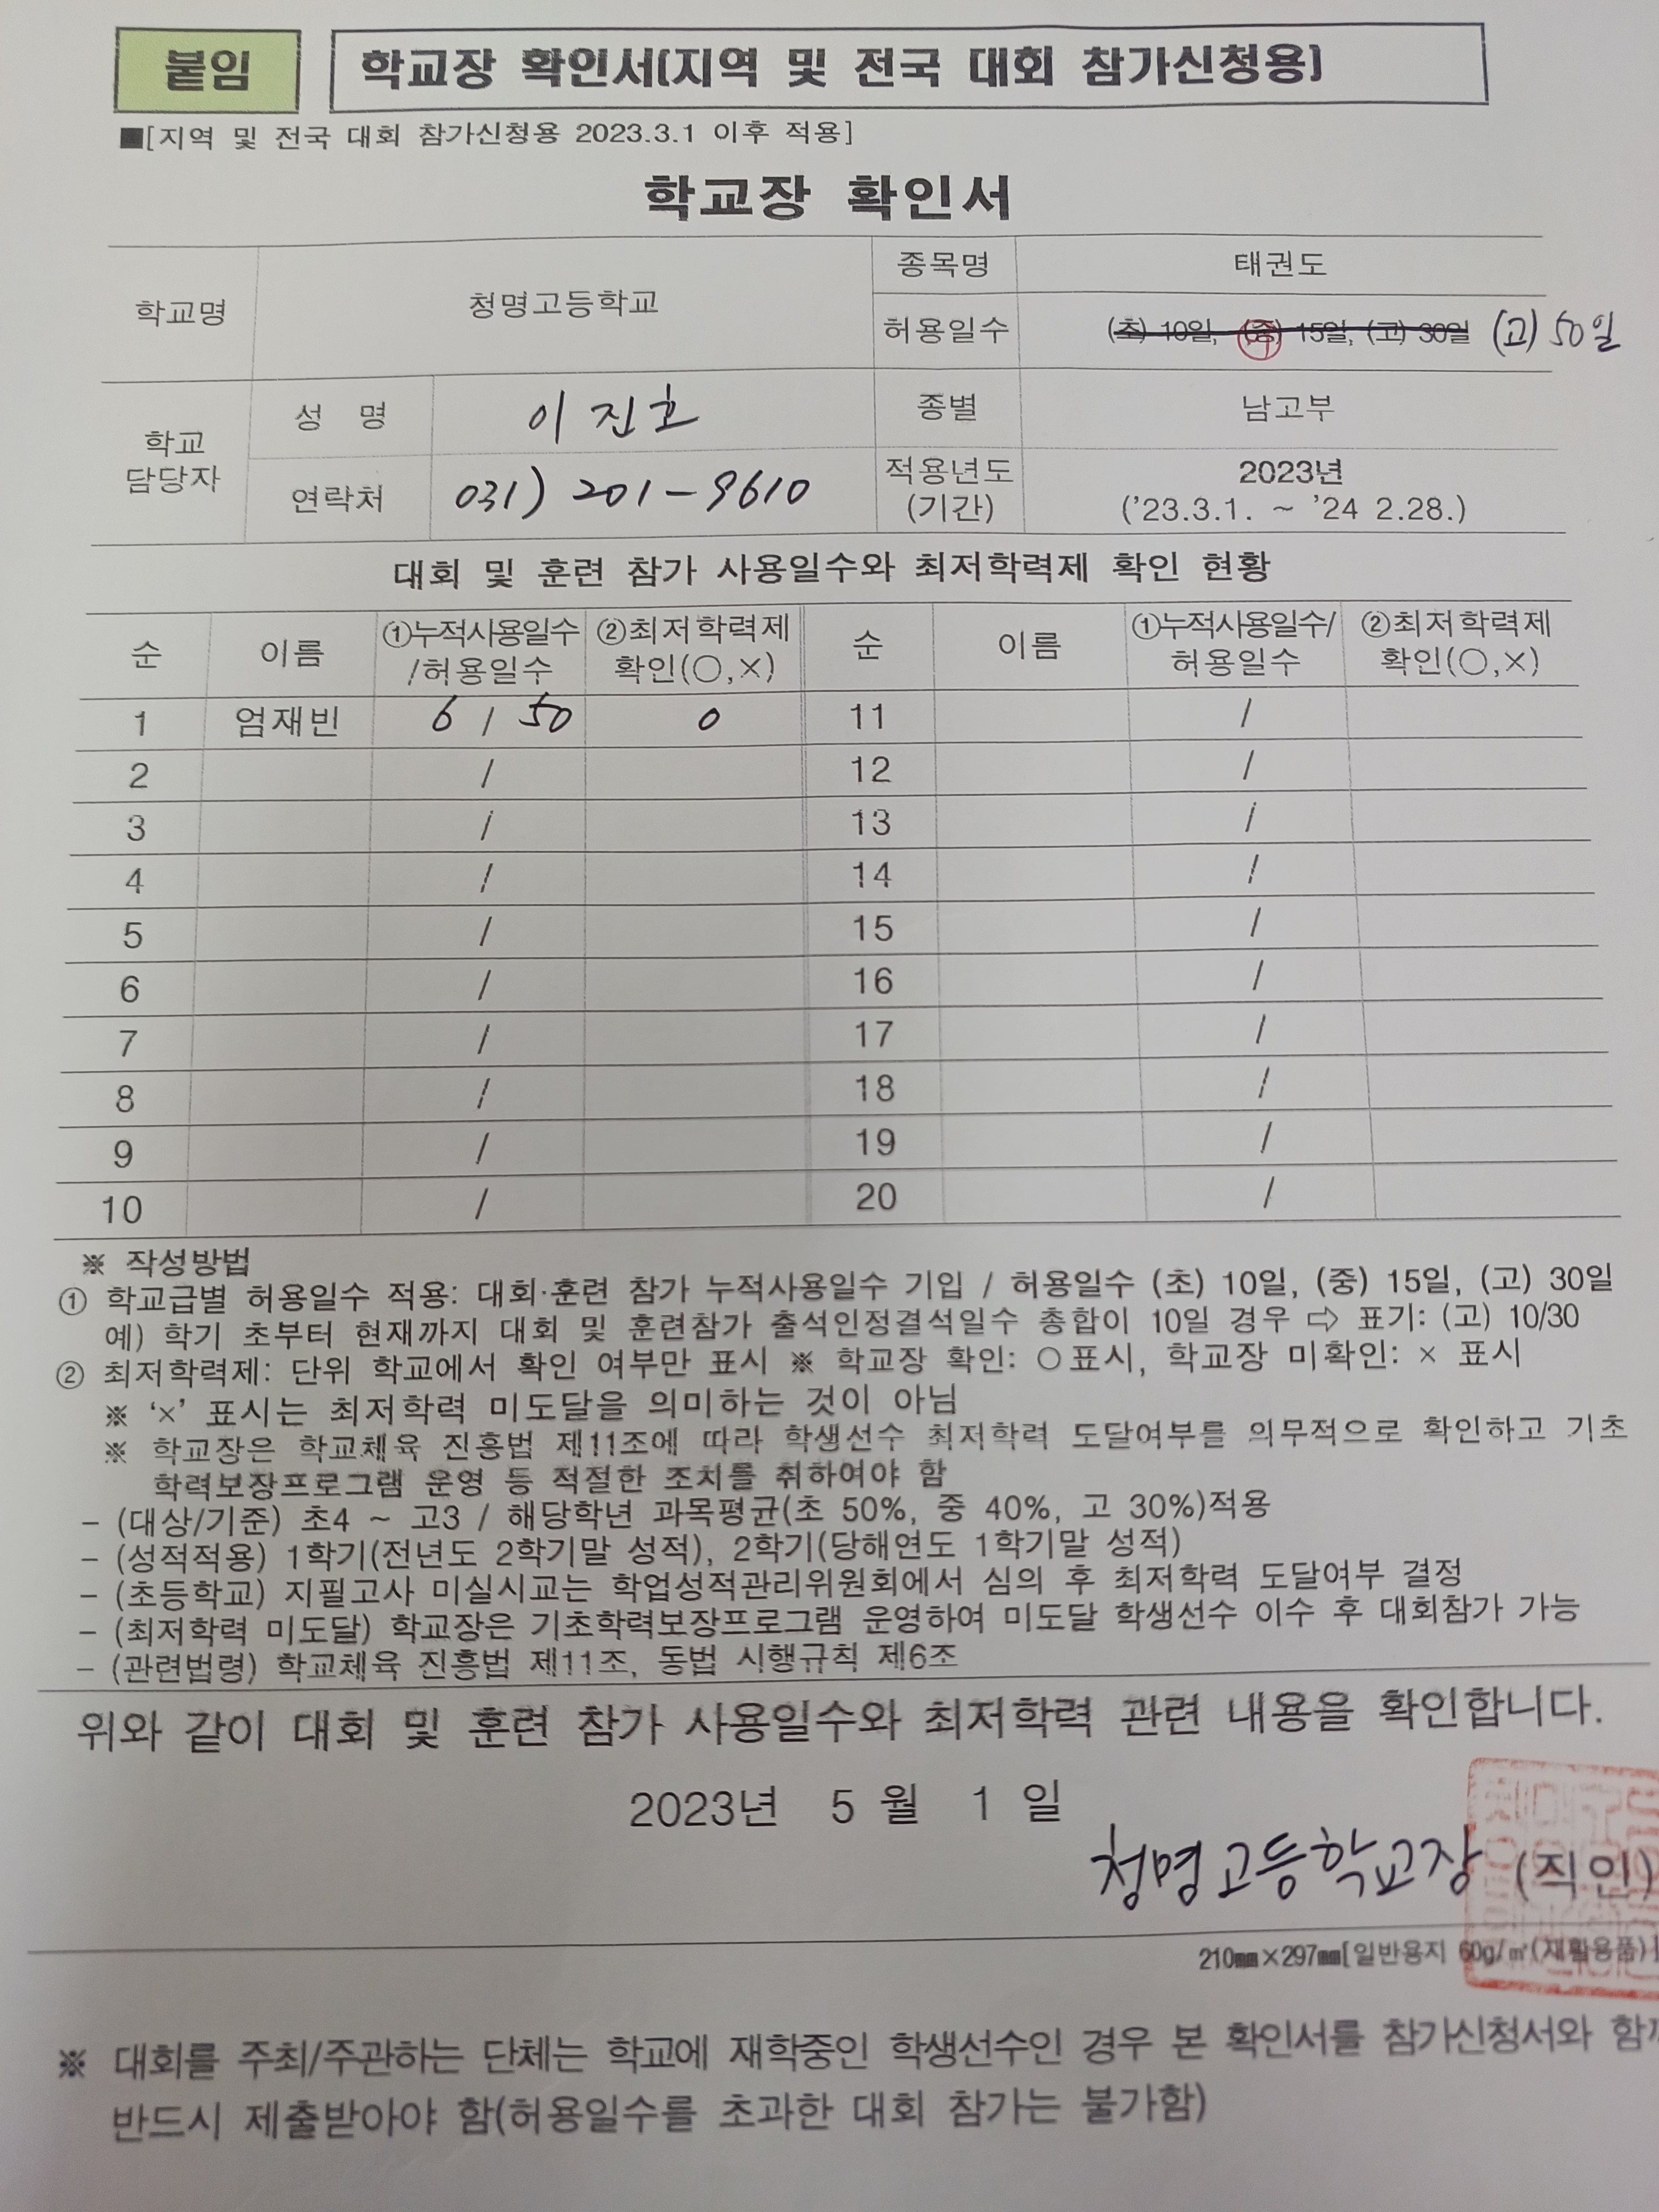 붙임 학교장 확인서(지역 및 전국 대회 참가신청용)
■[지역 및 전국 대회 참가신청용 2023.3.1 이후 적용]
학교장 확인서
학교명 청명고등학교 종목명 태권도
허용일수 (초) 10일, (중) 15일, (고) 30일 (고) 50일
학교 담당자 성 명 이진호 종별 남고부
연락처 031) 201-9610 적용년도 (기간) 2023년 ('23.3.1. ~ '24 2.28.)
대회 및 훈련 참가 사용일수와 최저학력제 확인 현황
순 이름 ①누적사용일수/허용일수 ②최저학력제 확인(○,×) 순 이름 ①누적사용일수/허용일수 ②최저학력제 확인(○,×)
1 엄재빈 6 / 50 0 11 /
2 / 12 /
3 / 13 /
4 / 14 /
5 / 15 /
6 / 16 /
7 / 17 /
8 / 18 /
9 / 19 /
10 / 20 /
※ 작성방법
① 학교급별 허용일수 적용: 대회·훈련 참가 누적사용일수 기입 / 허용일수 (초) 10일, (중) 15일, (고) 30일
예) 학기 초부터 현재까지 대회 및 훈련참가 출석인정결석일수 총합이 10일 경우 ⇨ 표기: (고) 10/30
② 최저학력제: 단위 학교에서 확인 여부만 표시 ※ 학교장 확인: ○표시, 학교장 미확인: × 표시
※ '×' 표시는 최저학력 미도달을 의미하는 것이 아님
※ 학교장은 학교체육 진흥법 제11조에 따라 학생선수 최저학력 도달여부를 의무적으로 확인하고 기초
학력보장프로그램 운영 등 적절한 조치를 취하여야 함
- (대상/기준) 초4 ~ 고3 / 해당학년 과목평균(초 50%, 중 40%, 고 30%)적용
- (성적적용) 1학기(전년도 2학기말 성적), 2학기(당해연도 1학기말 성적)
- (초등학교) 지필고사 미실시교는 학업성적관리위원회에서 심의 후 최저학력 도달여부 결정
- (최저학력 미도달) 학교장은 기초학력보장프로그램 운영하여 미도달 학생선수 이수 후 대회참가 가능
- (관련법령) 학교체육 진흥법 제11조, 동법 시행규칙 제6조
위와 같이 대회 및 훈련 참가 사용일수와 최저학력 관련 내용을 확인합니다.
2023년 5 월 1 일
청명고등학교장 (직인)
210㎜×297㎜[일반용지 60g/㎡(재활용품)]
※ 대회를 주최/주관하는 단체는 학교에 재학중인 학생선수인 경우 본 확인서를 참가신청서와
반드시 제출받아야 함(허용일수를 초과한 대회 참가는 불가함)